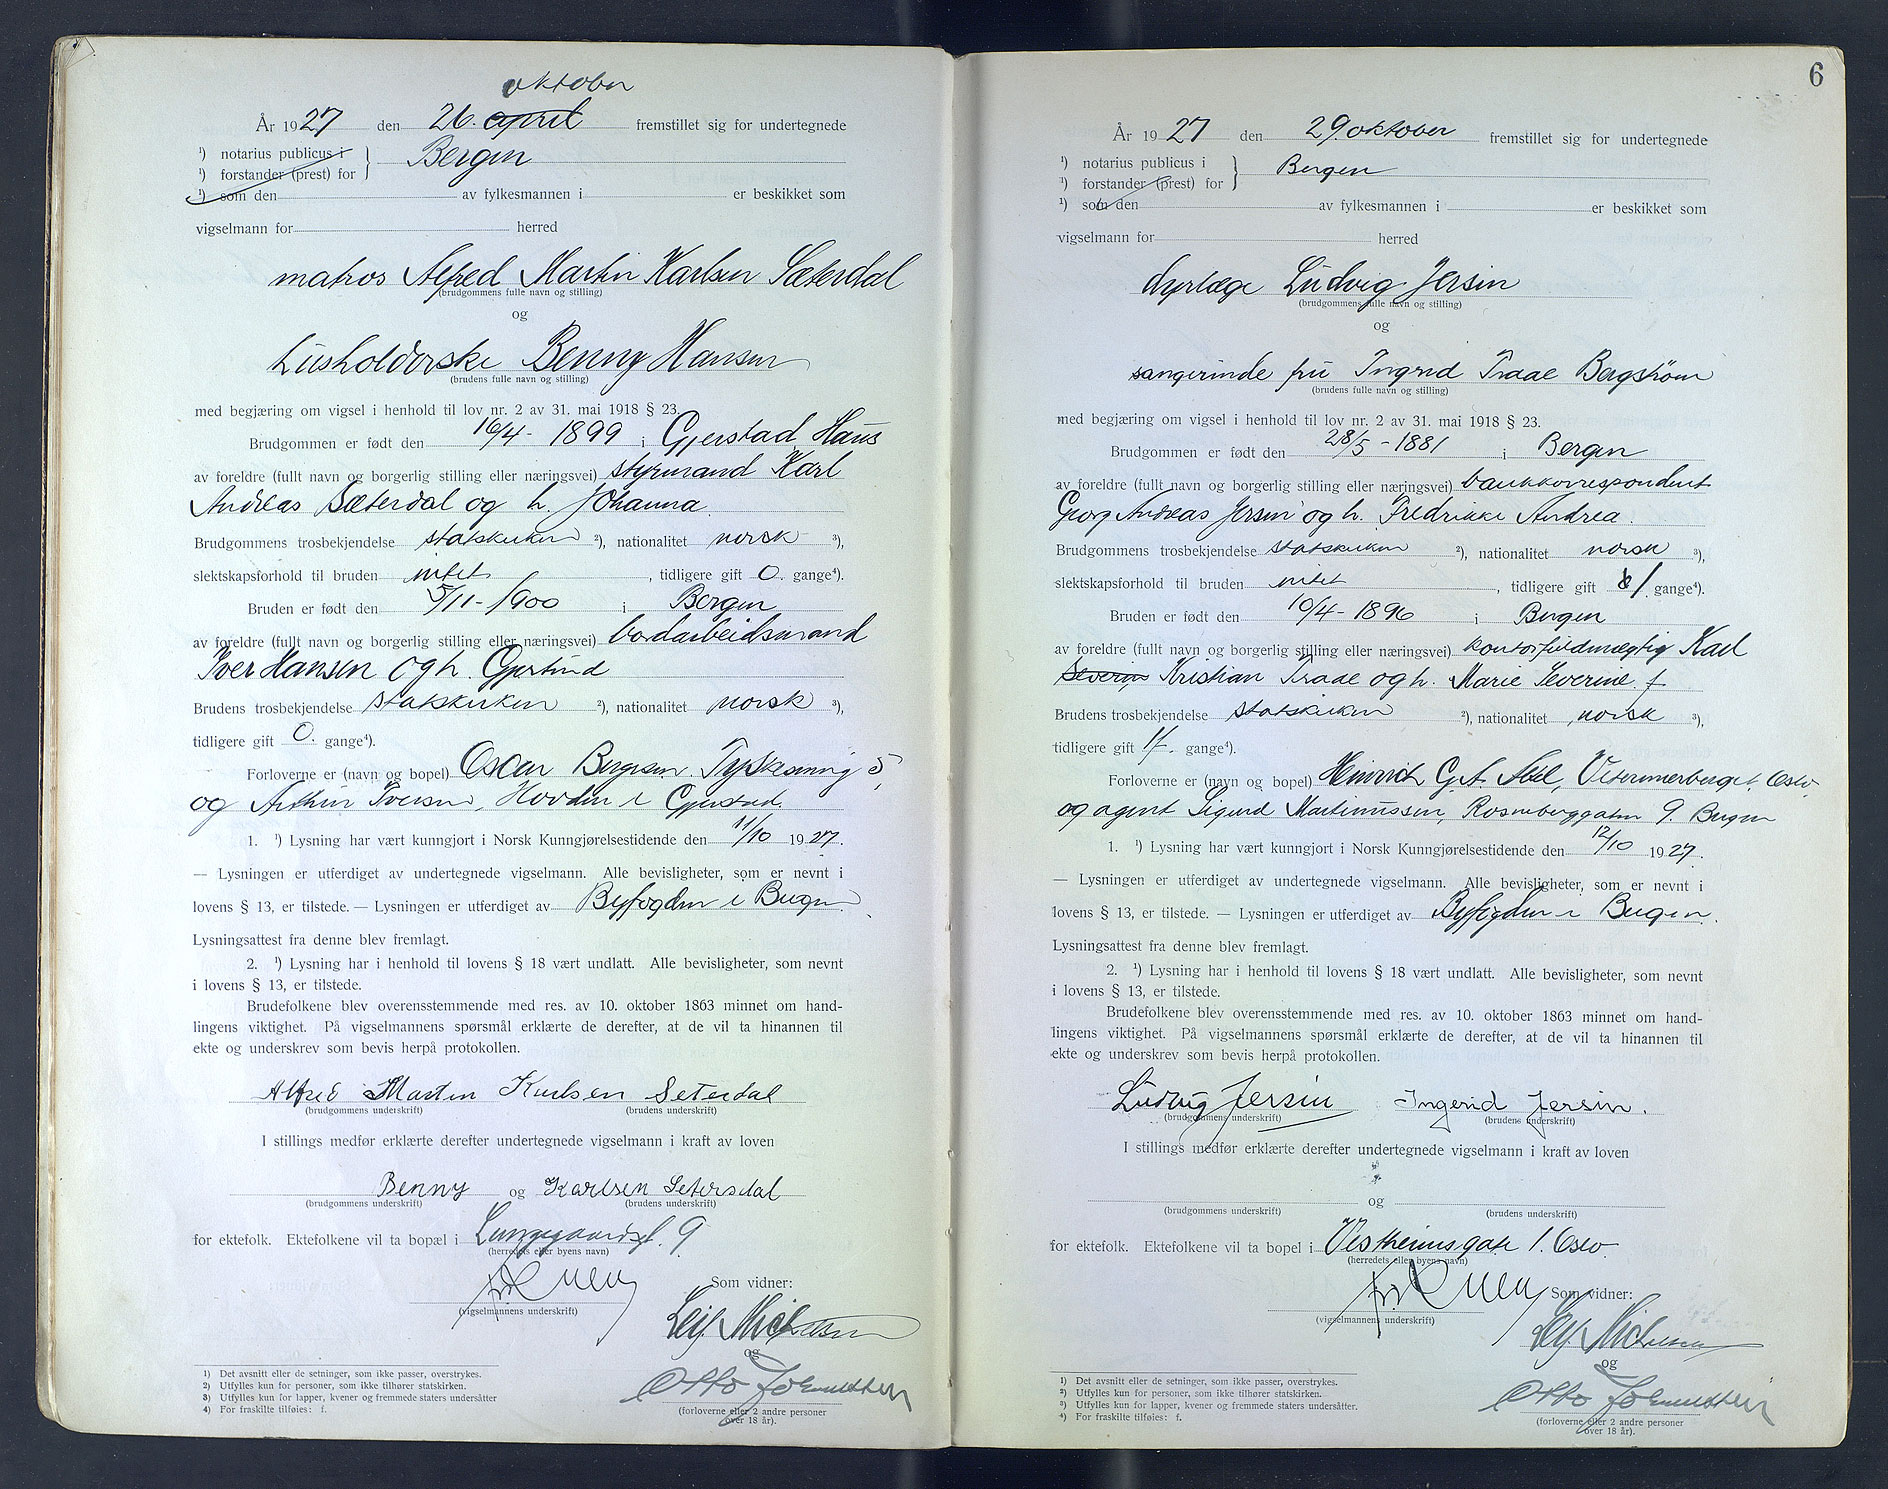 oktober
År 1927 den 26. april fremstillet sig for undertegnede
¹) notarius publicus i
¹) forstander (prest) for } Bergen
¹) som den av fylkesmannen i er beskikket som
vigselmann for herred
matros Alfred Martin Karlsen Sæterdal
(brudgommens fulle navn og stilling)
og
husholderske Benny Hansen
(brudens fulle navn og stilling)
med begjæring om vigsel i henhold til lov nr. 2 av 31. mai 1918 § 23.
Brudgommen er født den 16/4 - 1899 i Gjerstad, Haus
av foreldre (fullt navn og borgerlig stilling eller næringsvei) styrmand Karl
Andreas Sæterdal og h. Johanna
Brudgommens trosbekjendelse statskirken ²), nationalitet norsk ³),
slektskapsforhold til bruden intet, tidligere gift 0. gange⁴).
Bruden er født den 5/11 - 1900 i Bergen
av foreldre (fullt navn og borgerlig stilling eller næringsvei) bordarbeidsmand
Iver Hansen og h. Gjertrud
Brudens trosbekjendelse statskirken ²), nationalitet norsk ³),
tidligere gift 0. gange⁴).
Forloverne er (navn og bopel) Oscar Bergesen 5
og Arthur Iversen, Hovden i Gjerstad.
1. ¹) Lysning har vært kunngjort i Norsk Kunngjørelsestidende den 11/10 1927.
— Lysningen er utferdiget av undertegnede vigselmann. Alle bevisligheter, som er nevnt i
lovens § 13, er tilstede. — Lysningen er utferdiget av Byfogden i Bergen
Lysningsattest fra denne blev fremlagt.
2. ¹) Lysning har i henhold til lovens § 18 vært undlatt. Alle bevisligheter, som nevnt
i lovens § 13, er tilstede.
Brudefolkene blev overensstemmende med res. av 10. oktober 1863 minnet om hand-
lingens viktighet. På vigselmannens spørsmål erklærte de derefter, at de vil ta hinannen til
ekte og underskrev som bevis herpå protokollen.
Alfred Martin Karlsen Seterdal
(brudgommens underskrift) (brudens underskrift)
I stillings medfør erklærte derefter undertegnede vigselmann i kraft av loven
Benny og Karlsen Setersdal
(brudgommens underskrift) (brudens underskrift)
for ektefolk. Ektefolkene vil ta bopæl i Lungegaardsgt. 9
(herredets eller byens navn)
Som vidner:
(vigselmannens underskrift)
Leif Michelsen
og
Otto
(forloverne eller 2 andre personer
over 18 år).
1) Det avsnitt eller de setninger, som ikke passer, overstrykes.
2) Utfylles kun for personer, som ikke tilhører statskirken.
3) Utfylles kun for lapper, kvener og fremmede staters undersåtter
4) For fraskilte tilføies: f.
6
År 1927 den 29. oktober fremstillet sig for undertegnede
¹) notarius publicus i
¹) forstander (prest) for } Bergen
¹) som den av fylkesmannen i er beskikket som
vigselmann for herred
dyrlæge Ludvig Jersin
(brudgommens fulle navn og stilling)
og
sangerinde fru Ingrid Traae Bergstrøm
(brudens fulle navn og stilling)
med begjæring om vigsel i henhold til lov nr. 2 av 31. mai 1918 § 23.
Brudgommen er født den 28/5 - 1881 i Bergen
av foreldre (fullt navn og borgerlig stilling eller næringsvei) bankkorrespondent
Georg Andreas Jersin og h. Fredrikke Andrea.
Brudgommens trosbekjendelse statskirken ²), nationalitet norsk ³),
slektskapsforhold til bruden intet, tidligere gift 1 gange⁴).
Bruden er født den 10/4 - 1896 i Bergen
av foreldre (fullt navn og borgerlig stilling eller næringsvei) kontorfuldmægtig Karl
Severin Kristian Traae og h. Marie Severine. f
Brudens trosbekjendelse statskirken ²), nationalitet norsk ³),
tidligere gift 1f. gange⁴).
Forloverne er (navn og bopel) Heinrich G. A. Oslo
og agent Sigurd Martinussen, Rosenberggaten 9. Bergen
1. ¹) Lysning har vært kunngjort i Norsk Kunngjørelsestidende den 12/10 1927.
— Lysningen er utferdiget av undertegnede vigselmann. Alle bevisligheter, som er nevnt i
lovens § 13, er tilstede. — Lysningen er utferdiget av Byfogden i Bergen.
Lysningsattest fra denne blev fremlagt.
2. ¹) Lysning har i henhold til lovens § 18 vært undlatt. Alle bevisligheter, som nevnt
i lovens § 13, er tilstede.
Brudefolkene blev overensstemmende med res. av 10. oktober 1863 minnet om hand-
lingens viktighet. På vigselmannens spørsmål erklærte de derefter, at de vil ta hinannen til
ekte og underskrev som bevis herpå protokollen.
Ludvig Jersin Ingerid Jersin.
(brudgommens underskrift) (brudens underskrift)
I stillings medfør erklærte derefter undertegnede vigselmann i kraft av loven
og
(brudgommens underskrift) (brudens underskrift)
for ektefolk. Ektefolkene vil ta bopel i Vestheimsgate 1. Oslo.
(herredets eller byens navn)
Som vidner:
(vigselmannens underskrift)
Leif Michelsen
og
Otto
(forloverne eller 2 andre personer
over 18 år).
¹) Det avsnitt eller de setninger, som ikke passer, overstrykes.
²) Utfylles kun for personer, som ikke tilhører statskirken.
³) Utfylles kun for lapper, kvener og fremmede staters undersåtter.
⁴) For fraskilte tilføies: f.